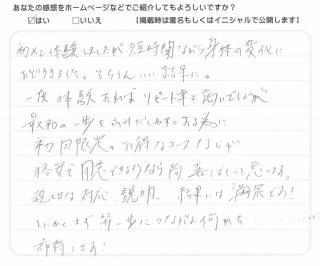 あなたの感想をホームページなどでご紹介してもよろしいですか？
☑はい □いいえ 【掲載時は匿名もしくはイニシャルで公開します】
初めて体験しましたが短時間ながら身体の変化に
おどろきました。もちろんいい結果に。
一度体験すればリピート率も高いでしょうが
最初の一歩をふみだしやすくする為に
初回限定のお得なコースなどが
格安で用意できるようなら尚喜ばしいと思います。
親切な対応、説明、結果には満足です！
とにかくまず第一歩につながる何かを
期待します！